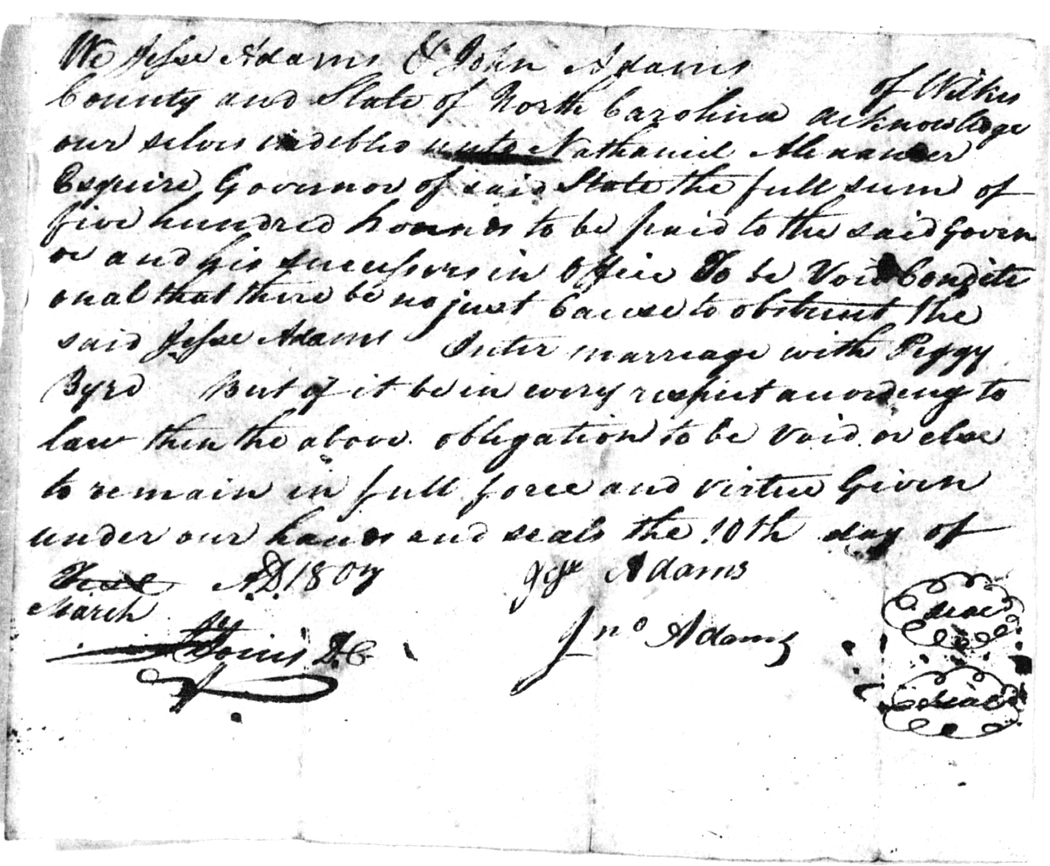 We Jesse Adams & John Adams of Wilkes
County and State of North Carolina acknowledge
our selves indebted unto Nathaniel Alexander
Esquire, Governor of said State the full sum of
five hundred pounds to be paid to the said Govern
or and his successors in office To be Void Conditi
onal that there be no just Cause to obstruct the
said Jesse Adams Inter marriage with Peggy
Byrd But if it be in every respect according to
law then the above obligation to be void or else
to remain in full force and virtue Given
under our hands and seals the 10th day of
AD. 1807 Jesse Adams seal
March
D.C. Jno Adams seal